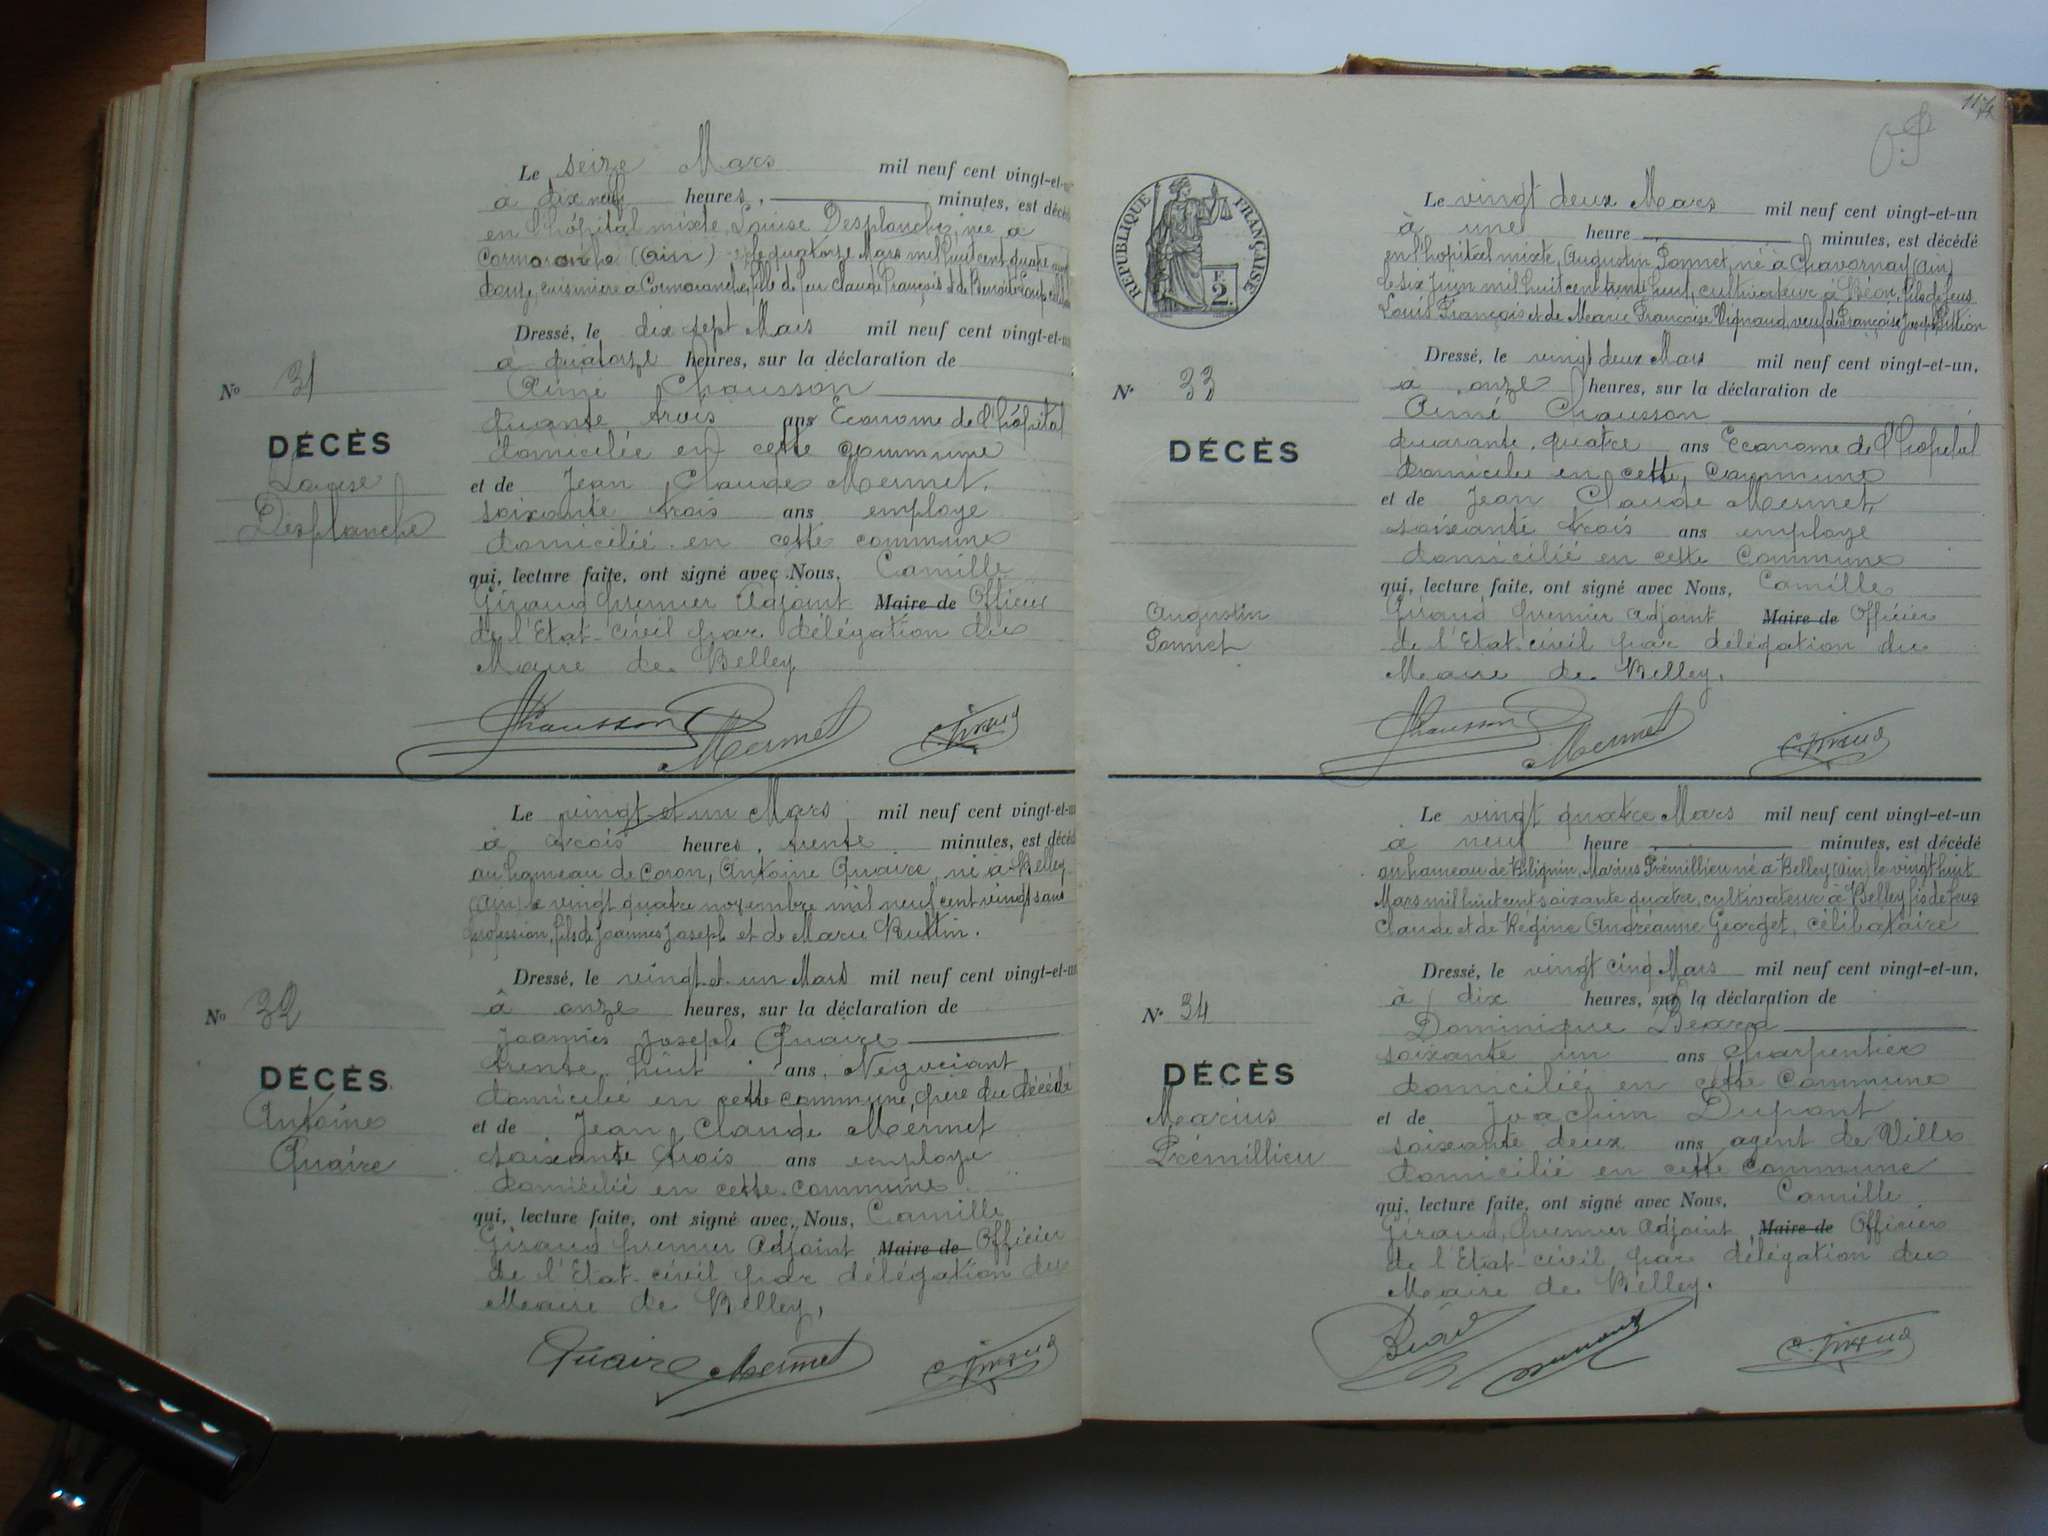 Le seize Mars mil neuf cent vingt-et-un
à dix neuf heures, minutes, est décédé
en l'hôpital mixte, Louise Desplanche, née à
Cormoranche (Ain) le quatorze Mars mil huit cent quatre vingt
douze, cuisinière à Cormoranche, fille de feu Claude François et de Benoite Loup
Dressé, le dix sept Mars mil neuf cent vingt-et-un
à quatorze heures, sur la déclaration de
Aimé Chausson
quante trois ans Econome de l'hôpital
domiciliée en cette commune
et de Jean Claude Mermet,
soixante trois ans employé
domicilié en cette commune
qui, lecture faite, ont signé avec Nous, Camille
Giraud premier Adjoint Maire de Officier
de l'Etat-civil par délégation du
Maire de Belley
Chausson Mermet C. Giraud
No 31
DÉCÈS
Louise
Desplanche
Le vingt et un Mars mil neuf cent vingt-et-un
à trois heures, trente minutes, est décédé
au hameau de Coron, Antoine Quaire, né à Belley
(Ain) le vingt quatre novembre mil neuf cent vingt sans
profession, fils de Joannès Joseph et de Marie Ruttin.
Dressé, le vingt et un Mars mil neuf cent vingt-et-un
à onze heures, sur la déclaration de
Joannès Joseph Quaire
trente huit ans, Négociant
domicilié en cette commune, père du décédé
et de Jean Claude Mermet
soixante trois ans employé
domicilié en cette commune
qui, lecture faite, ont signé avec Nous, Camille
Giraud premier Adjoint Maire de Officier
de l'Etat-civil par délégation du
Maire de Belley,
Quaire Mermet C. Giraud
No 32
DÉCÈS
Antoine
Quaire
117
RÉPUBLIQUE FRANÇAISE
F.
2.
Le vingt deux Mars mil neuf cent vingt-et-un
à une heure minutes, est décédé
en l'hôpital mixte, Augustin Ponnet, né à Chavornay (Ain)
le six Juin mil huit cent trente huit, cultivateur à Béon, fils de feus
Louis François et de Marie Françoise Vignaud, veuf de Françoise Josephte Billion
Dressé, le vingt deux Mars mil neuf cent vingt-et-un,
à onze heures, sur la déclaration de
Aimé Chausson
quarante quatre ans Econome de l'hôpital
domiciliée en cette, Commune
et de Jean Claude Mermet,
soixante trois ans employé
domicilié en cette Commune
qui, lecture faite, ont signé avec Nous, Camille
Giraud premier Adjoint Maire de Officier
de l'Etat-civil par délégation du
Maire de Belley,
Chausson Mermet C. Giraud
No 33
DÉCÈS
Augustin
Ponnet
Le vingt quatre Mars mil neuf cent vingt-et-un
à neuf heure minutes, est décédé
au hameau de Bilignin, Marius Prémillieu né à Belley (Ain) le vingt huit
Mars mil huit cent soixante quatre, cultivateur à Belley fils de feus
Claude et de Régine Andréanne Georget, célibataire
Dressé, le vingt cinq Mars mil neuf cent vingt-et-un,
à dix heures, sur la déclaration de
Dominique Béard
soixante un ans Charpentier
domicilié en cette Commune
et de Joachim Dupont
soixante deux ans agent de Ville
domicilié en cette commune
qui, lecture faite, ont signé avec Nous, Camille
Giraud, premier Adjoint Maire de Officier
de l'Etat-civil par délégation du
Maire de Belley.
Béard C. Giraud
No 34
DÉCÈS
Marius
Prémillieu